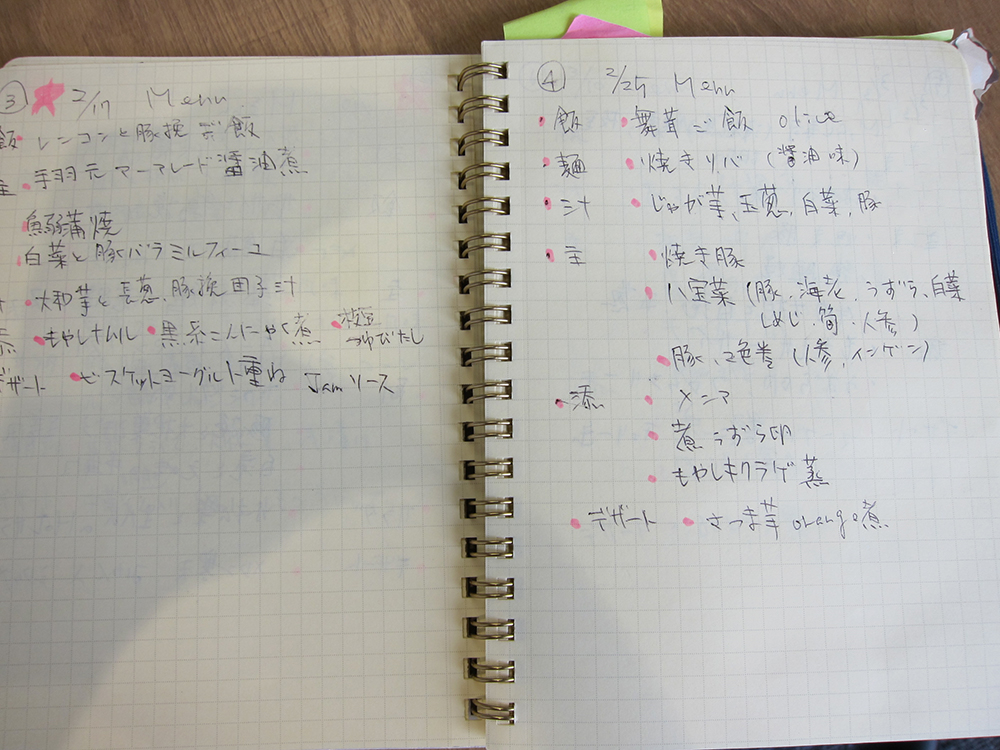 ③ 2/17 Menu
飯 レンコンと豚挽ご飯
主 手羽元マーマレード醤油煮
蒲焼
白菜と豚バラミルフィーユ
大和芋と長葱、豚挽団子汁
もやしナムル 黒糸こんにゃく煮 枝豆
びたし
デザート ビスケットヨーグルト重ね Jamソース
④ 2/25 Menu
飯 舞茸ご飯 olive
麺 焼きリバ (醤油味)
汁 じゃが芋、玉葱、白菜、豚
主 焼き豚
八宝菜 (豚、海老、うずら、白菜
しめじ、筍、人参)
豚、2色巻 (人参、インゲン)
添 メンマ
煮うずら卵
もやしキクラゲ蒸
デザート さつま芋orange煮